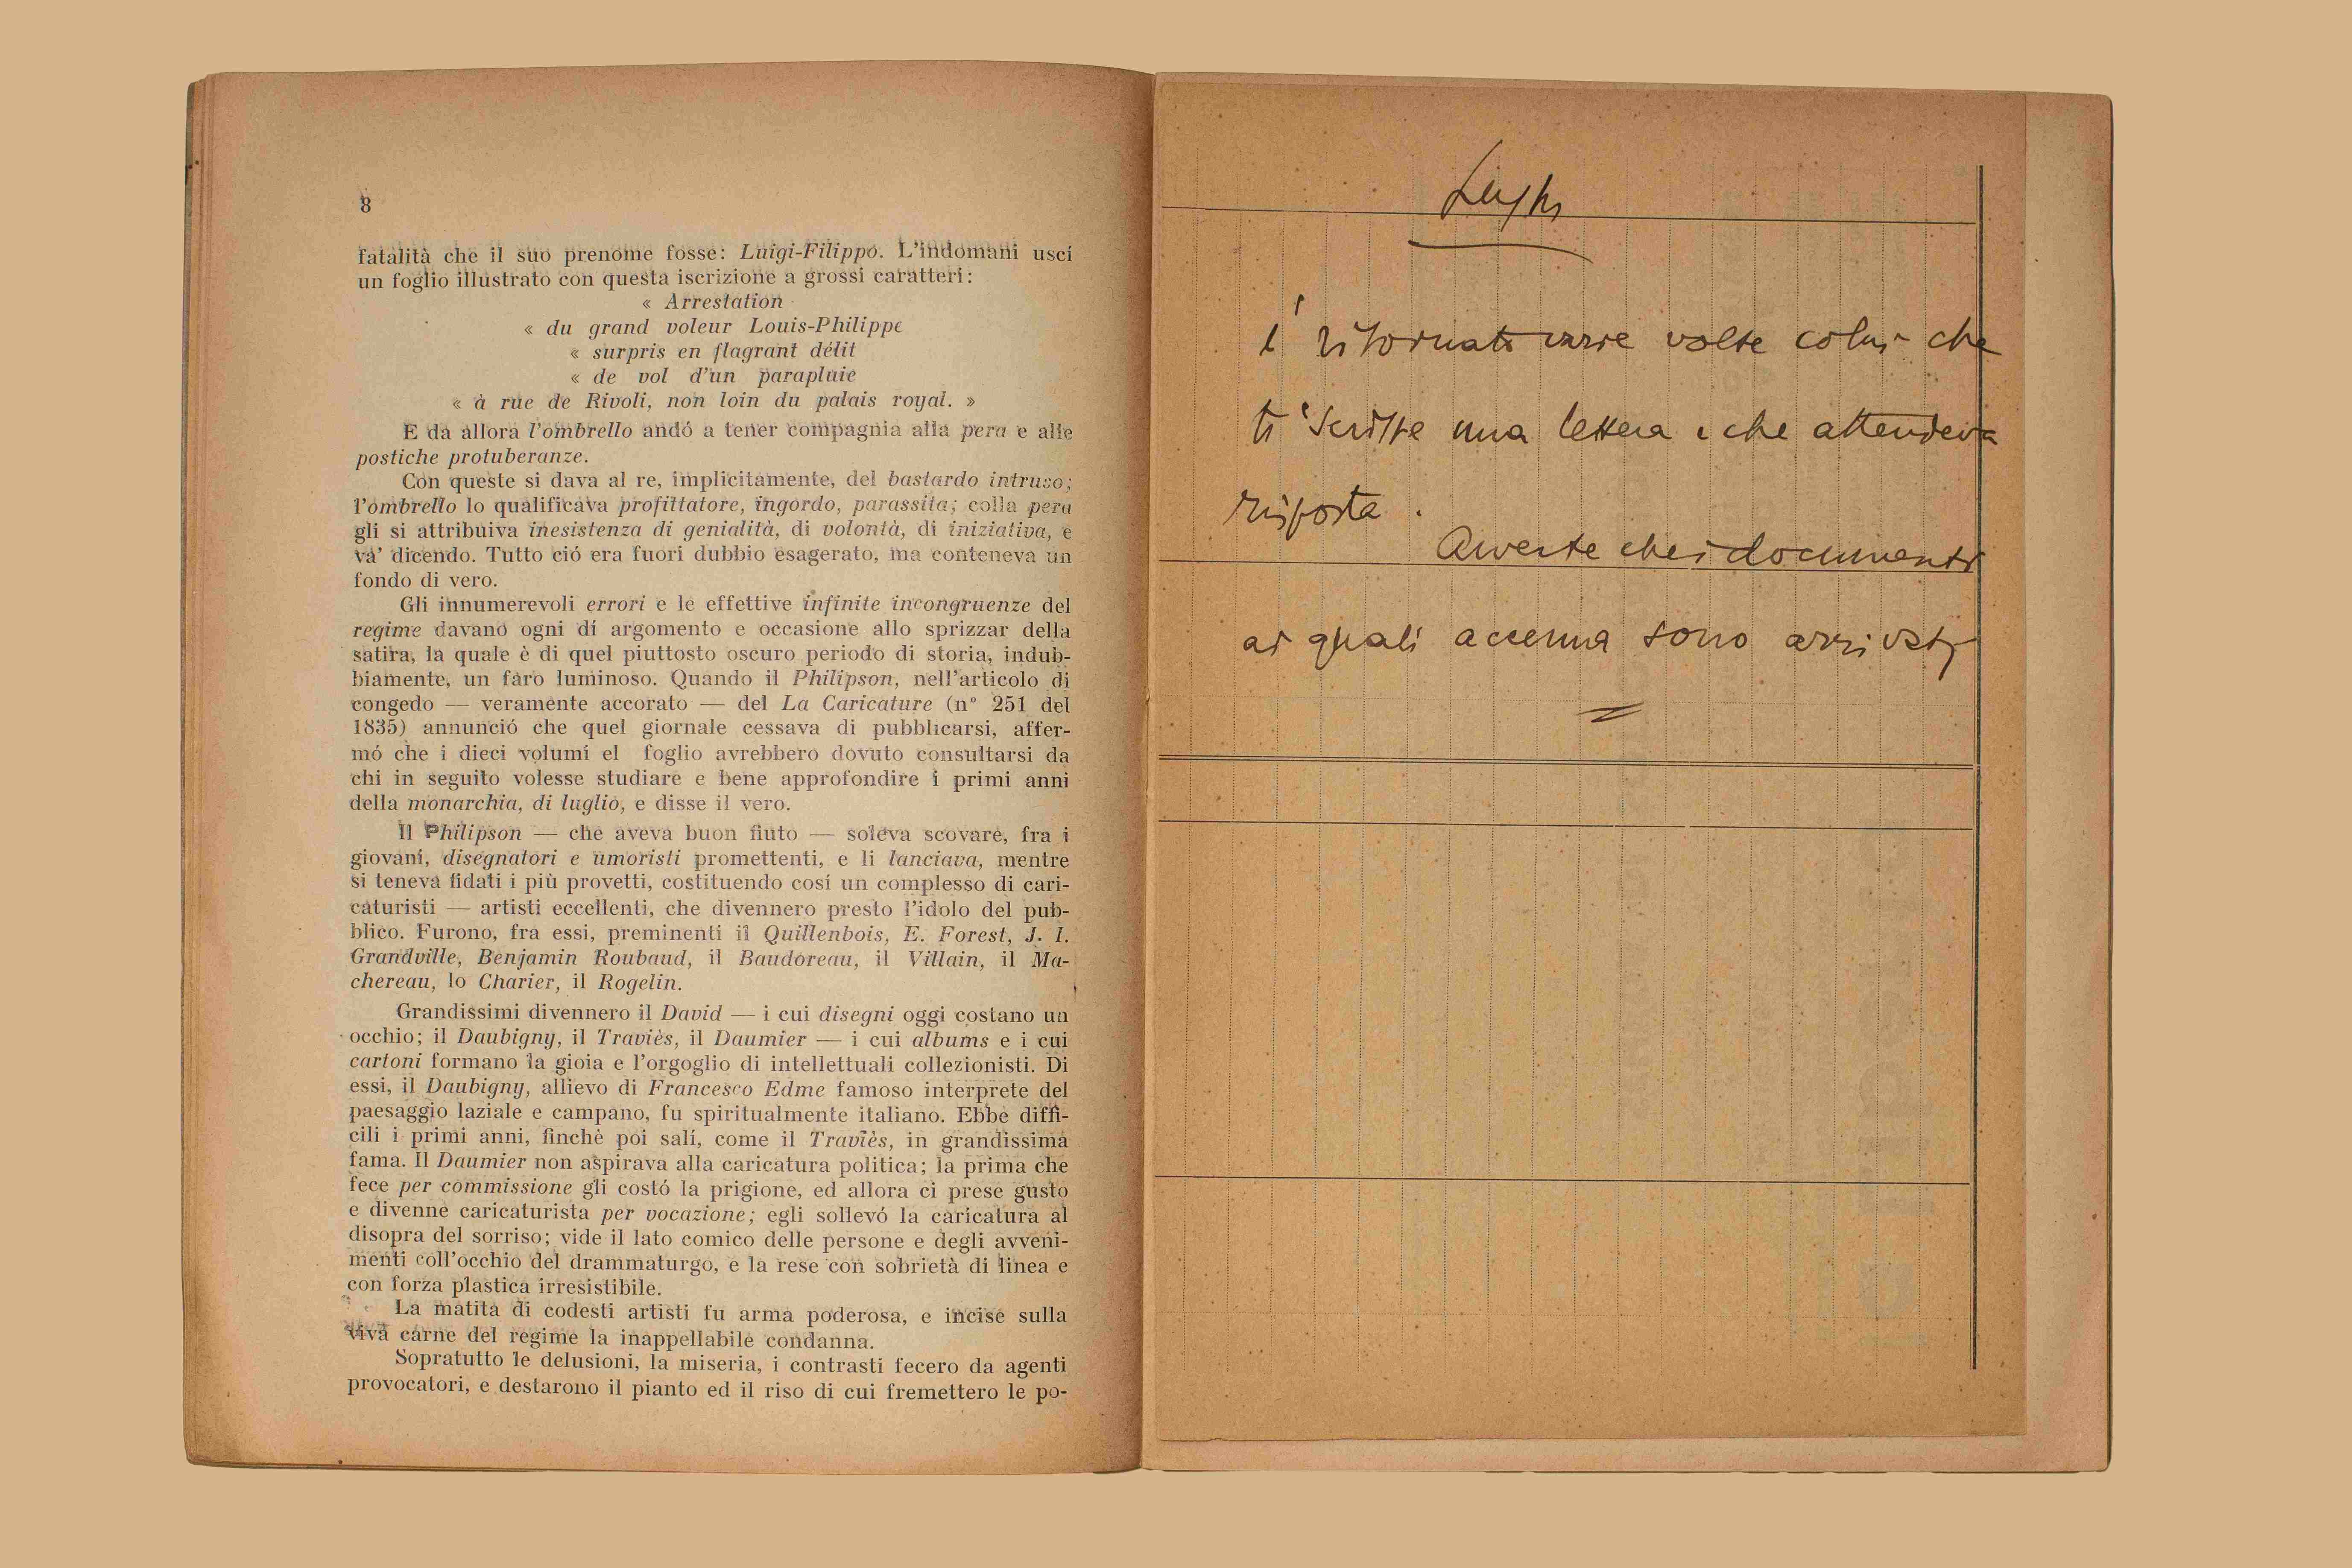 8
fatalità che il suo prenome fosse: Luigi-Filippo. L'indomani uscí
un foglio illustrato con questa iscrizione a grossi caratteri:
« Arrestation
« du grand voleur Louis-Philippe
« surpris en flagrant délit
« de vol d'un parapluie
« à rue de Rivoli, non loin du palais royal. »
E da allora l'ombrello andó a tener compagnia alla pera e alle
postiche protuberanze.
Con queste si dava al re, implicitamente, del bastardo intruso;
l'ombrello lo qualificava profittatore, ingordo, parassita; colla pera
gli si attribuiva inesistenza di genialità, di volontà, di iniziativa, e
va' dicendo. Tutto ció era fuori dubbio esagerato, ma conteneva un
fondo di vero.
Gli innumerevoli errori e le effettive infinite incongruenze del
regime davano ogni dí argomento e occasione allo sprizzar della
satira, la quale è di quel piuttosto oscuro periodo di storia, indub-
biamente, un faro luminoso. Quando il Philipson, nell'articolo di
congedo — veramente accorato — del La Caricature (n° 251 del
1835) annunció che quel giornale cessava di pubblicarsi, affer-
mó che i dieci volumi el foglio avrebbero dovuto consultarsi da
chi in seguito volesse studiare e bene approfondire i primi anni
della monarchia, di luglio, e disse il vero.
Il Philipson — che aveva buon fiuto — soleva scovare, fra i
giovani, disegnatori e umoristi promettenti, e li lanciava, mentre
si teneva fidati i più provetti, costituendo cosí un complesso di cari-
caturisti — artisti eccellenti, che divennero presto l'idolo del pub-
blico. Furono, fra essi, preminenti il Quillenbois, E. Forest, J. I.
Grandville, Benjamin Roubaud, il Baudoreau, il Villain, il Ma-
chereau, lo Charier, il Rogelin.
Grandissimi divennero il David — i cui disegni oggi costano un
occhio; il Daubigny, il Traviès, il Daumier — i cui albums e i cui
cartoni formano la gioia e l'orgoglio di intellettuali collezionisti. Di
essi, il Daubigny, allievo di Francesco Edme famoso interprete del
paesaggio laziale e campano, fu spiritualmente italiano. Ebbe diffi-
cili i primi anni, finchè poi salí, come il Traviès, in grandissima
fama. Il Daumier non aspirava alla caricatura politica; la prima che
fece per commissione gli costó la prigione, ed allora ci prese gusto
e divenne caricaturista per vocazione; egli sollevó la caricatura al
disopra del sorriso; vide il lato comico delle persone e degli avveni-
menti coll'occhio del drammaturgo, e la rese con sobrietà di linea e
con forza plastica irresistibile.
La matita di codesti artisti fu arma poderosa, e incise sulla
viva carne del regime la inappellabile condanna.
Sopratutto le delusioni, la miseria, i contrasti fecero da agenti
provocatori, e destarono il pianto ed il riso di cui fremettero le po-
é ritornato varie volte colui che
ti scrisse una lettera e che attendeva
risposta.
Avverte che i documenti
ai quali accenna sono arrivati